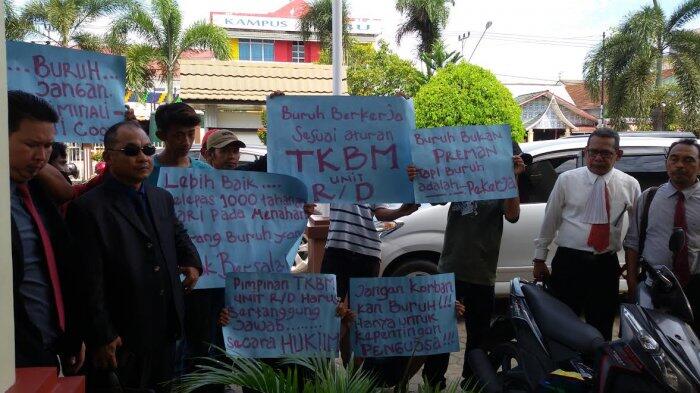 KAMPUS
...BURUH...
Jangan
DI COO
Buruh Berkerja
Sesuai aturan
TKBM
UNIT
R/D
BURUH BUKAN
PREMAN
TAPI BURUH
adalah...Pekerja
Lebih Baik....
1000 tahanan
DARI Pada Menahan
Buruh
Pimpinan TKBM
UNIT R/D Harus
Bertanggung
Jawab.......
secara HUKUM
Jangan Korban
kan BURUH!!!
Hanya untuk
Kepentingan
PENGUASA!!